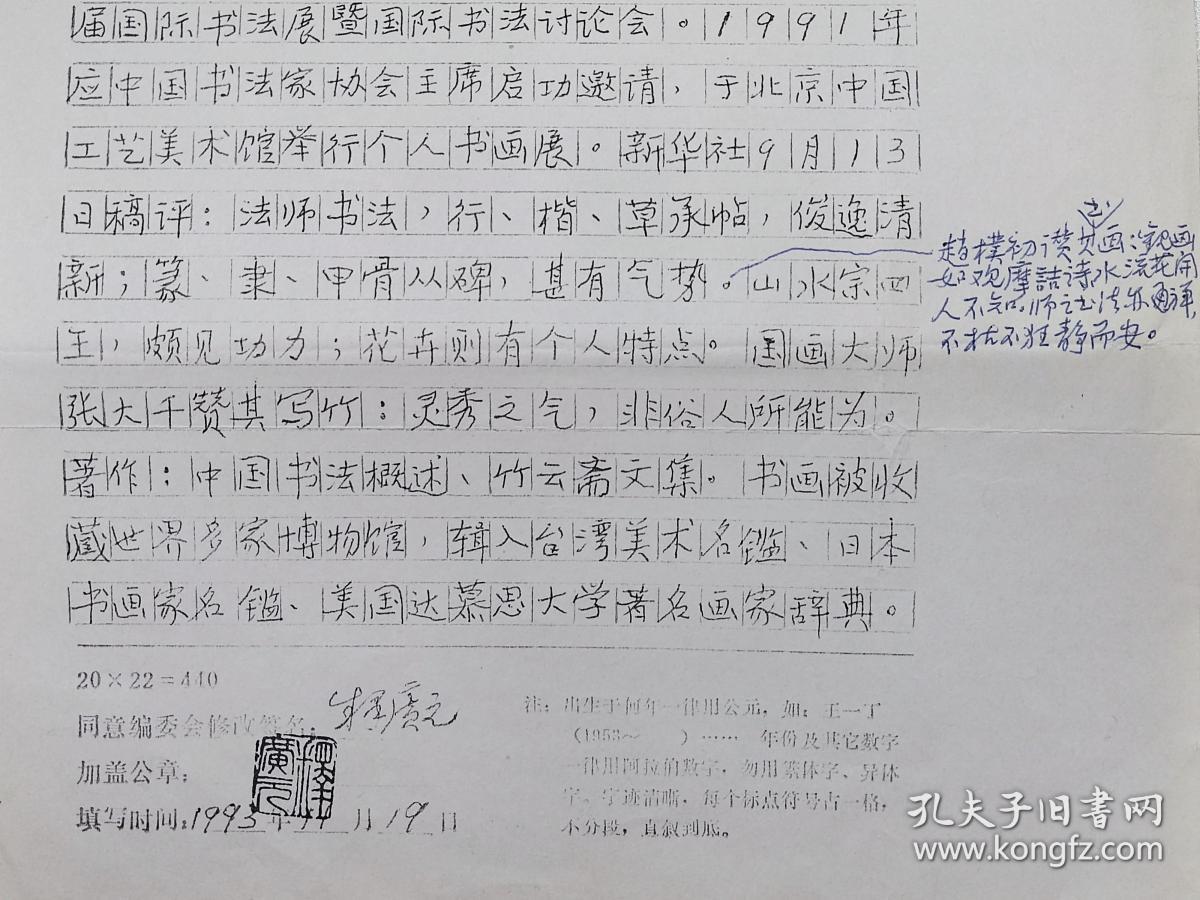 届国际书法展暨国际书法讨论会。1991年
应中国书法家协会主席启功邀请,于北京中国
工艺美术馆举行个人书画展。新华社9月13
日稿评:法师书法,行、楷、草承帖,俊逸清
新;篆、隶、甲骨从碑,甚有气势。山水宗四
王,颇见功力;花卉则有个人特点。国画大师
张大千赞其写竹:灵秀之气,非俗人所能为。
著作:中国书法概述、竹云斋文集。书画被收
藏世界多家博物馆,辑入台湾美术名鉴、日本
书画家名鉴、美国达慕思大学著名画家辞典。
书
趙樸初讚其画:观画
如观摩詰诗水流花開
人不知。师之书法亦通禅,
不枯不狂静而安。
20×22=440
同意编委会修改签名: 廣元
加盖公章:
廣元
填写时间:1993年11月19日
注:出生于何年一律用公元,如:王一丁
(1953~ )……年份及其它数字
一律用阿拉伯数字,勿用繁体字、异体
字。字迹清晰,每个标点符号占一格,
不分段,直叙到底。
孔夫子旧书网
www.kongfz.com